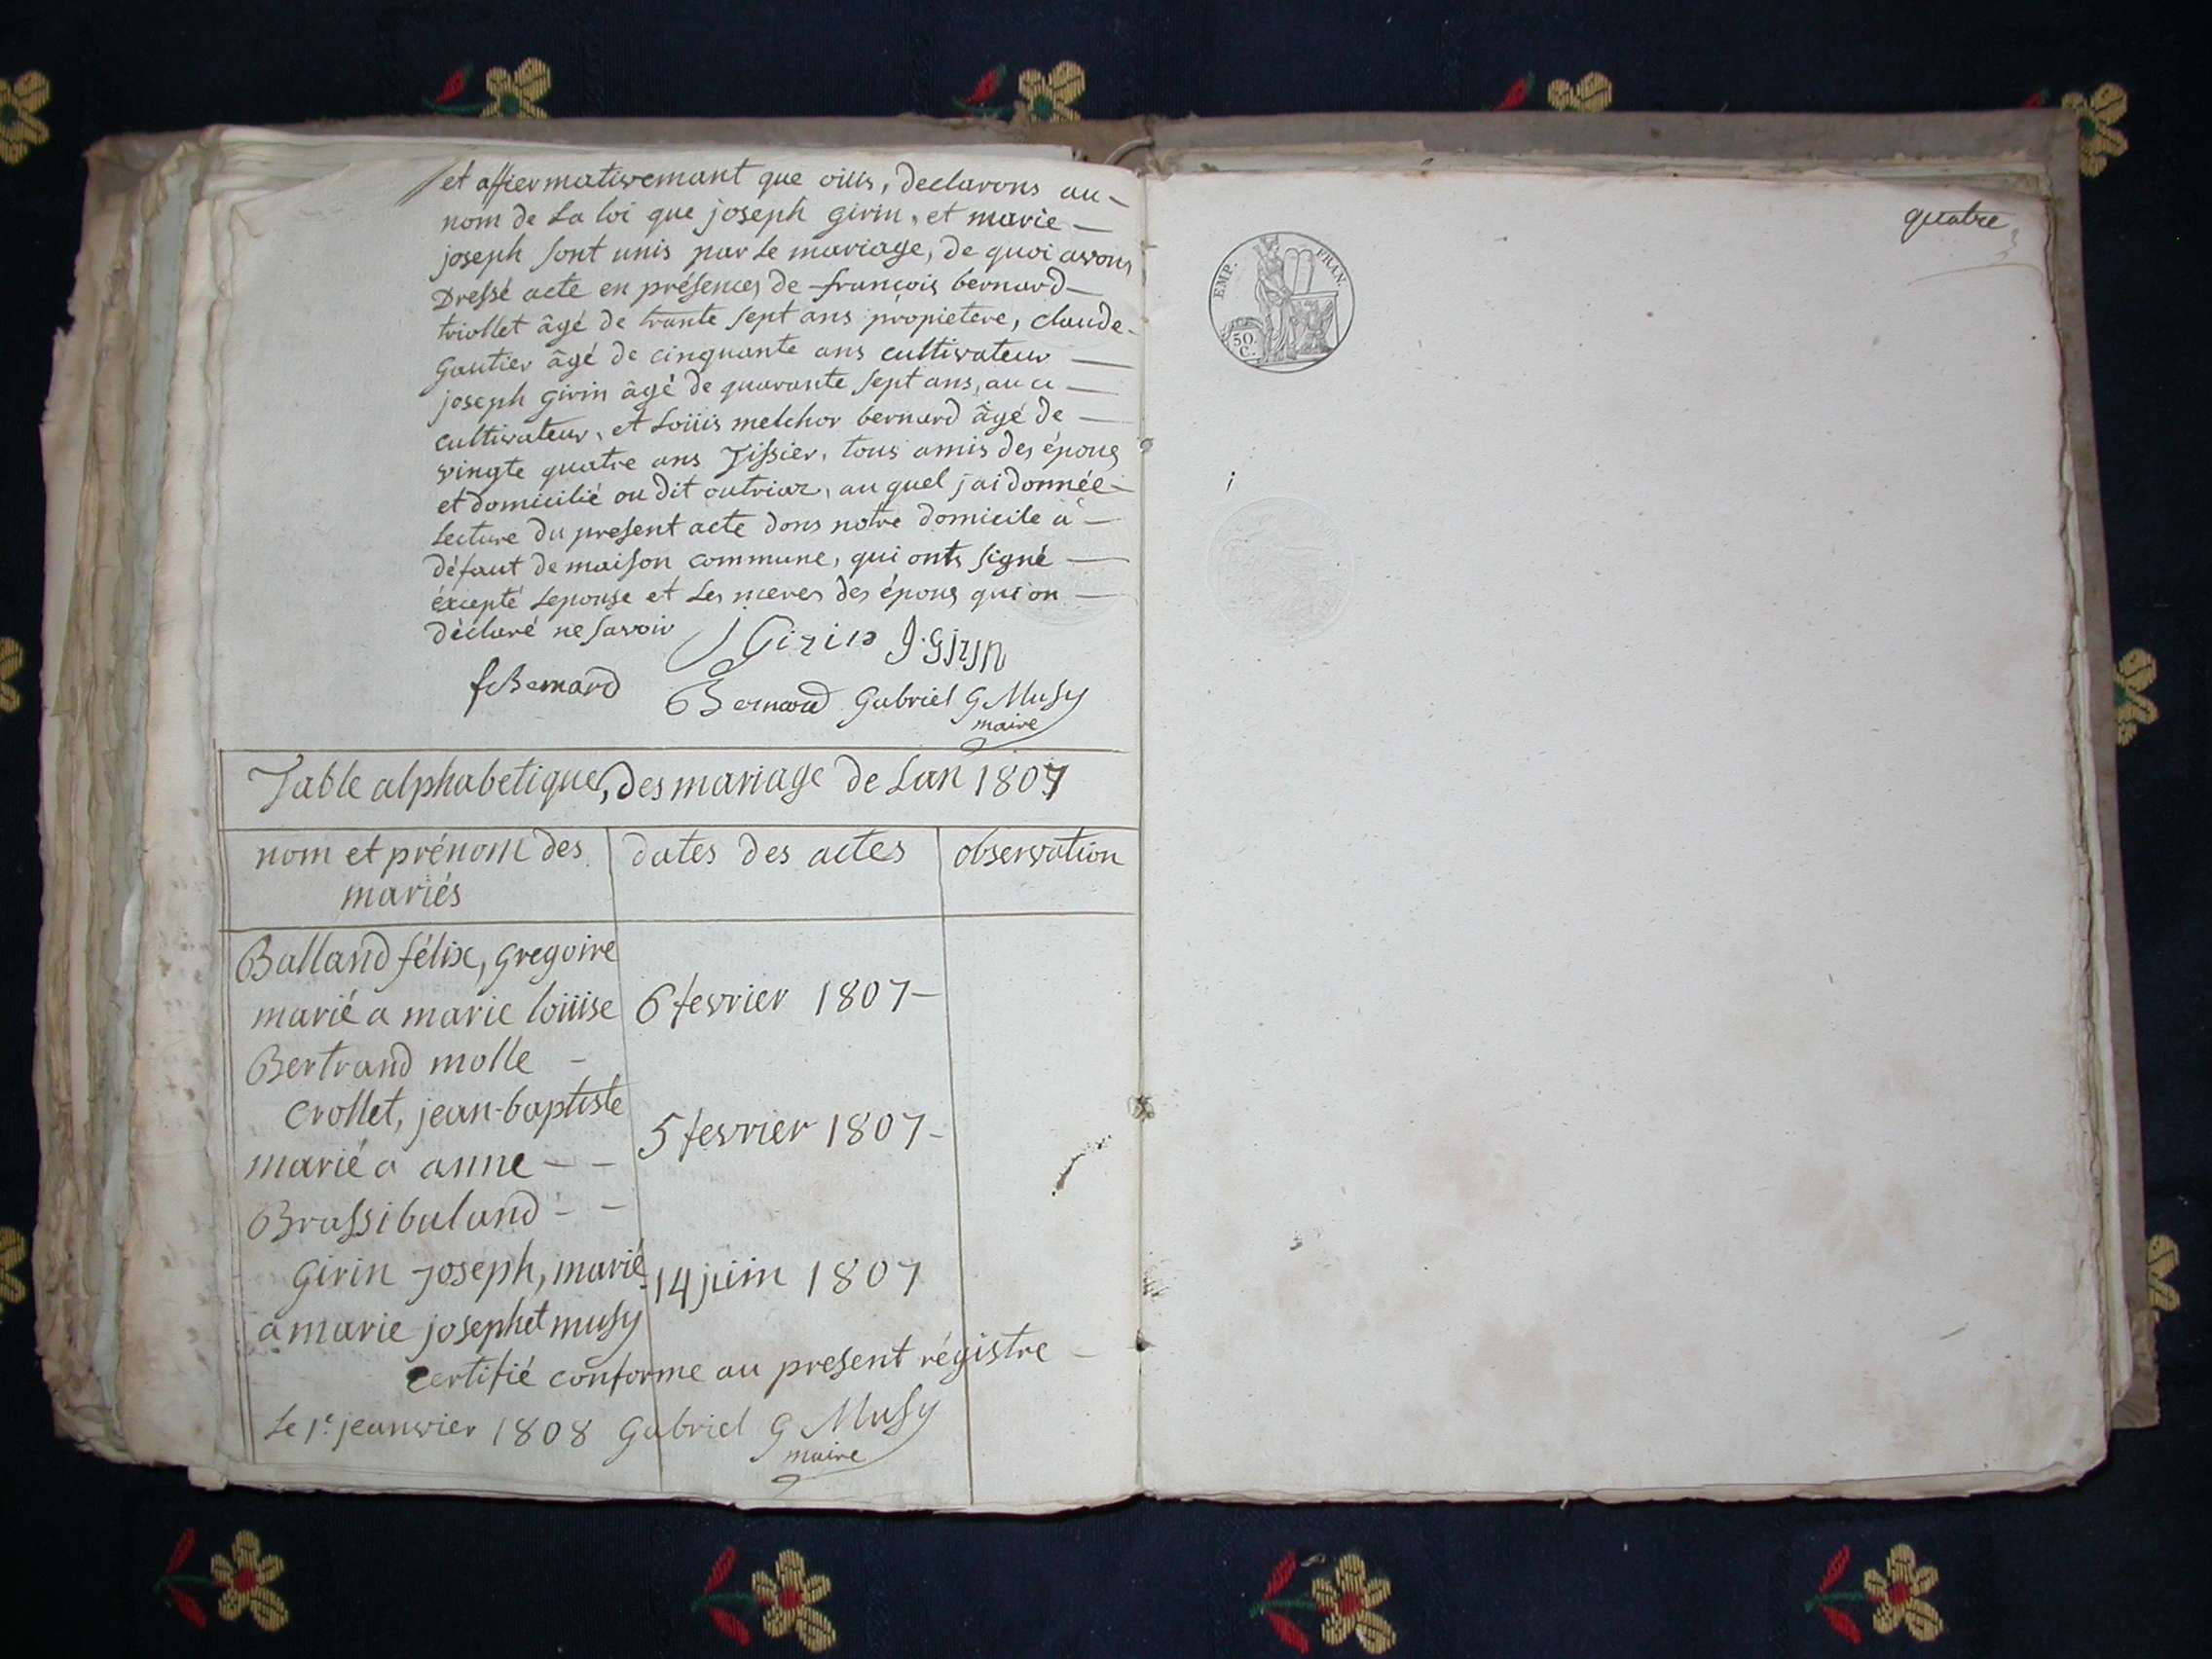 et affiermativemant que oius, declarons au-
nom de La loi que joseph girin, et marie-
joseph sont unis par Le mariage, de quoi avons
Dressé acte en présences de françois bernard-
triollet âgé de trante sept ans propietere, claude-
gautier âgé de cinquante ans cultivateur
joseph girin âgé de quarante sept ans,
cultivateur, et Loüis melchor bernard âgé de
vingte quatre ans Tissier, tous amis des époug
et domicilié ou dit outriaz, au quel jai donnée-
Lecture du present acte dons notre domicile à-
défaut de maison commune, qui onts signé
éxcepté Lepouse et Les meres des époug qui on
déclaré ne savoir J Girin J. Girin
fBernard Bernard Gabriel G Musy
maire
Table alphabetique, des mariage de Lan 1807
nom et prénom des mariés dates des actes observation
Balland félix, gregoire
marié a marie loüise 6 fevrier 1807-
Bertrand molle -
Crollet, jean-baptiste
marié a anne - - 5 fevrier 1807-
Brassibaland - -
girin joseph, marié 14 juin 1807
a marie josephet musy
certifié conforme au present régistre
Le 1.e jeanvier 1808 Gabriel G Musy
maire
quatre
EMP. FRAN.
50.
C.